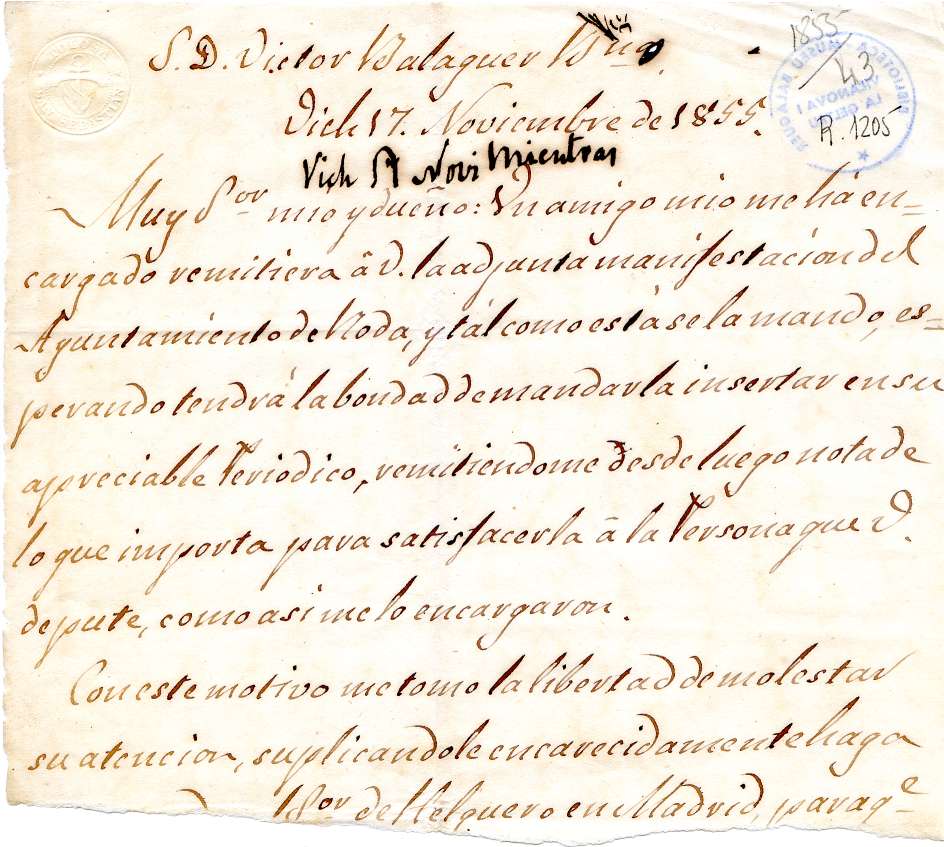 1855
43
R. 1205
BIBLIOTECA MUSEU BALAGUER
VILANOVA I
LA GELTRÚ
S. D. Victor Balaguer
Vich 17. Noviembre de 1855.
Vich Novi Mientras
Muy Sor mio y dueño: Un amigo mio me há en=
cargado remitiera â V. la adjunta manifestacion del
Ayuntamiento de Roda, y tál como está se la mando, es=
perando tendrá la bondad de mandarla insertar en su
apreciable Periódico, remitiendome desde luego nota de
lo que importa para satisfacerla â la Persona que V.
depute, como asi me lo encargaron.
Con este motivo me tomo la libertad de molestar
su atencion, suplicandole encarecidamente haga
Sor de Helguero en Madrid, para qe